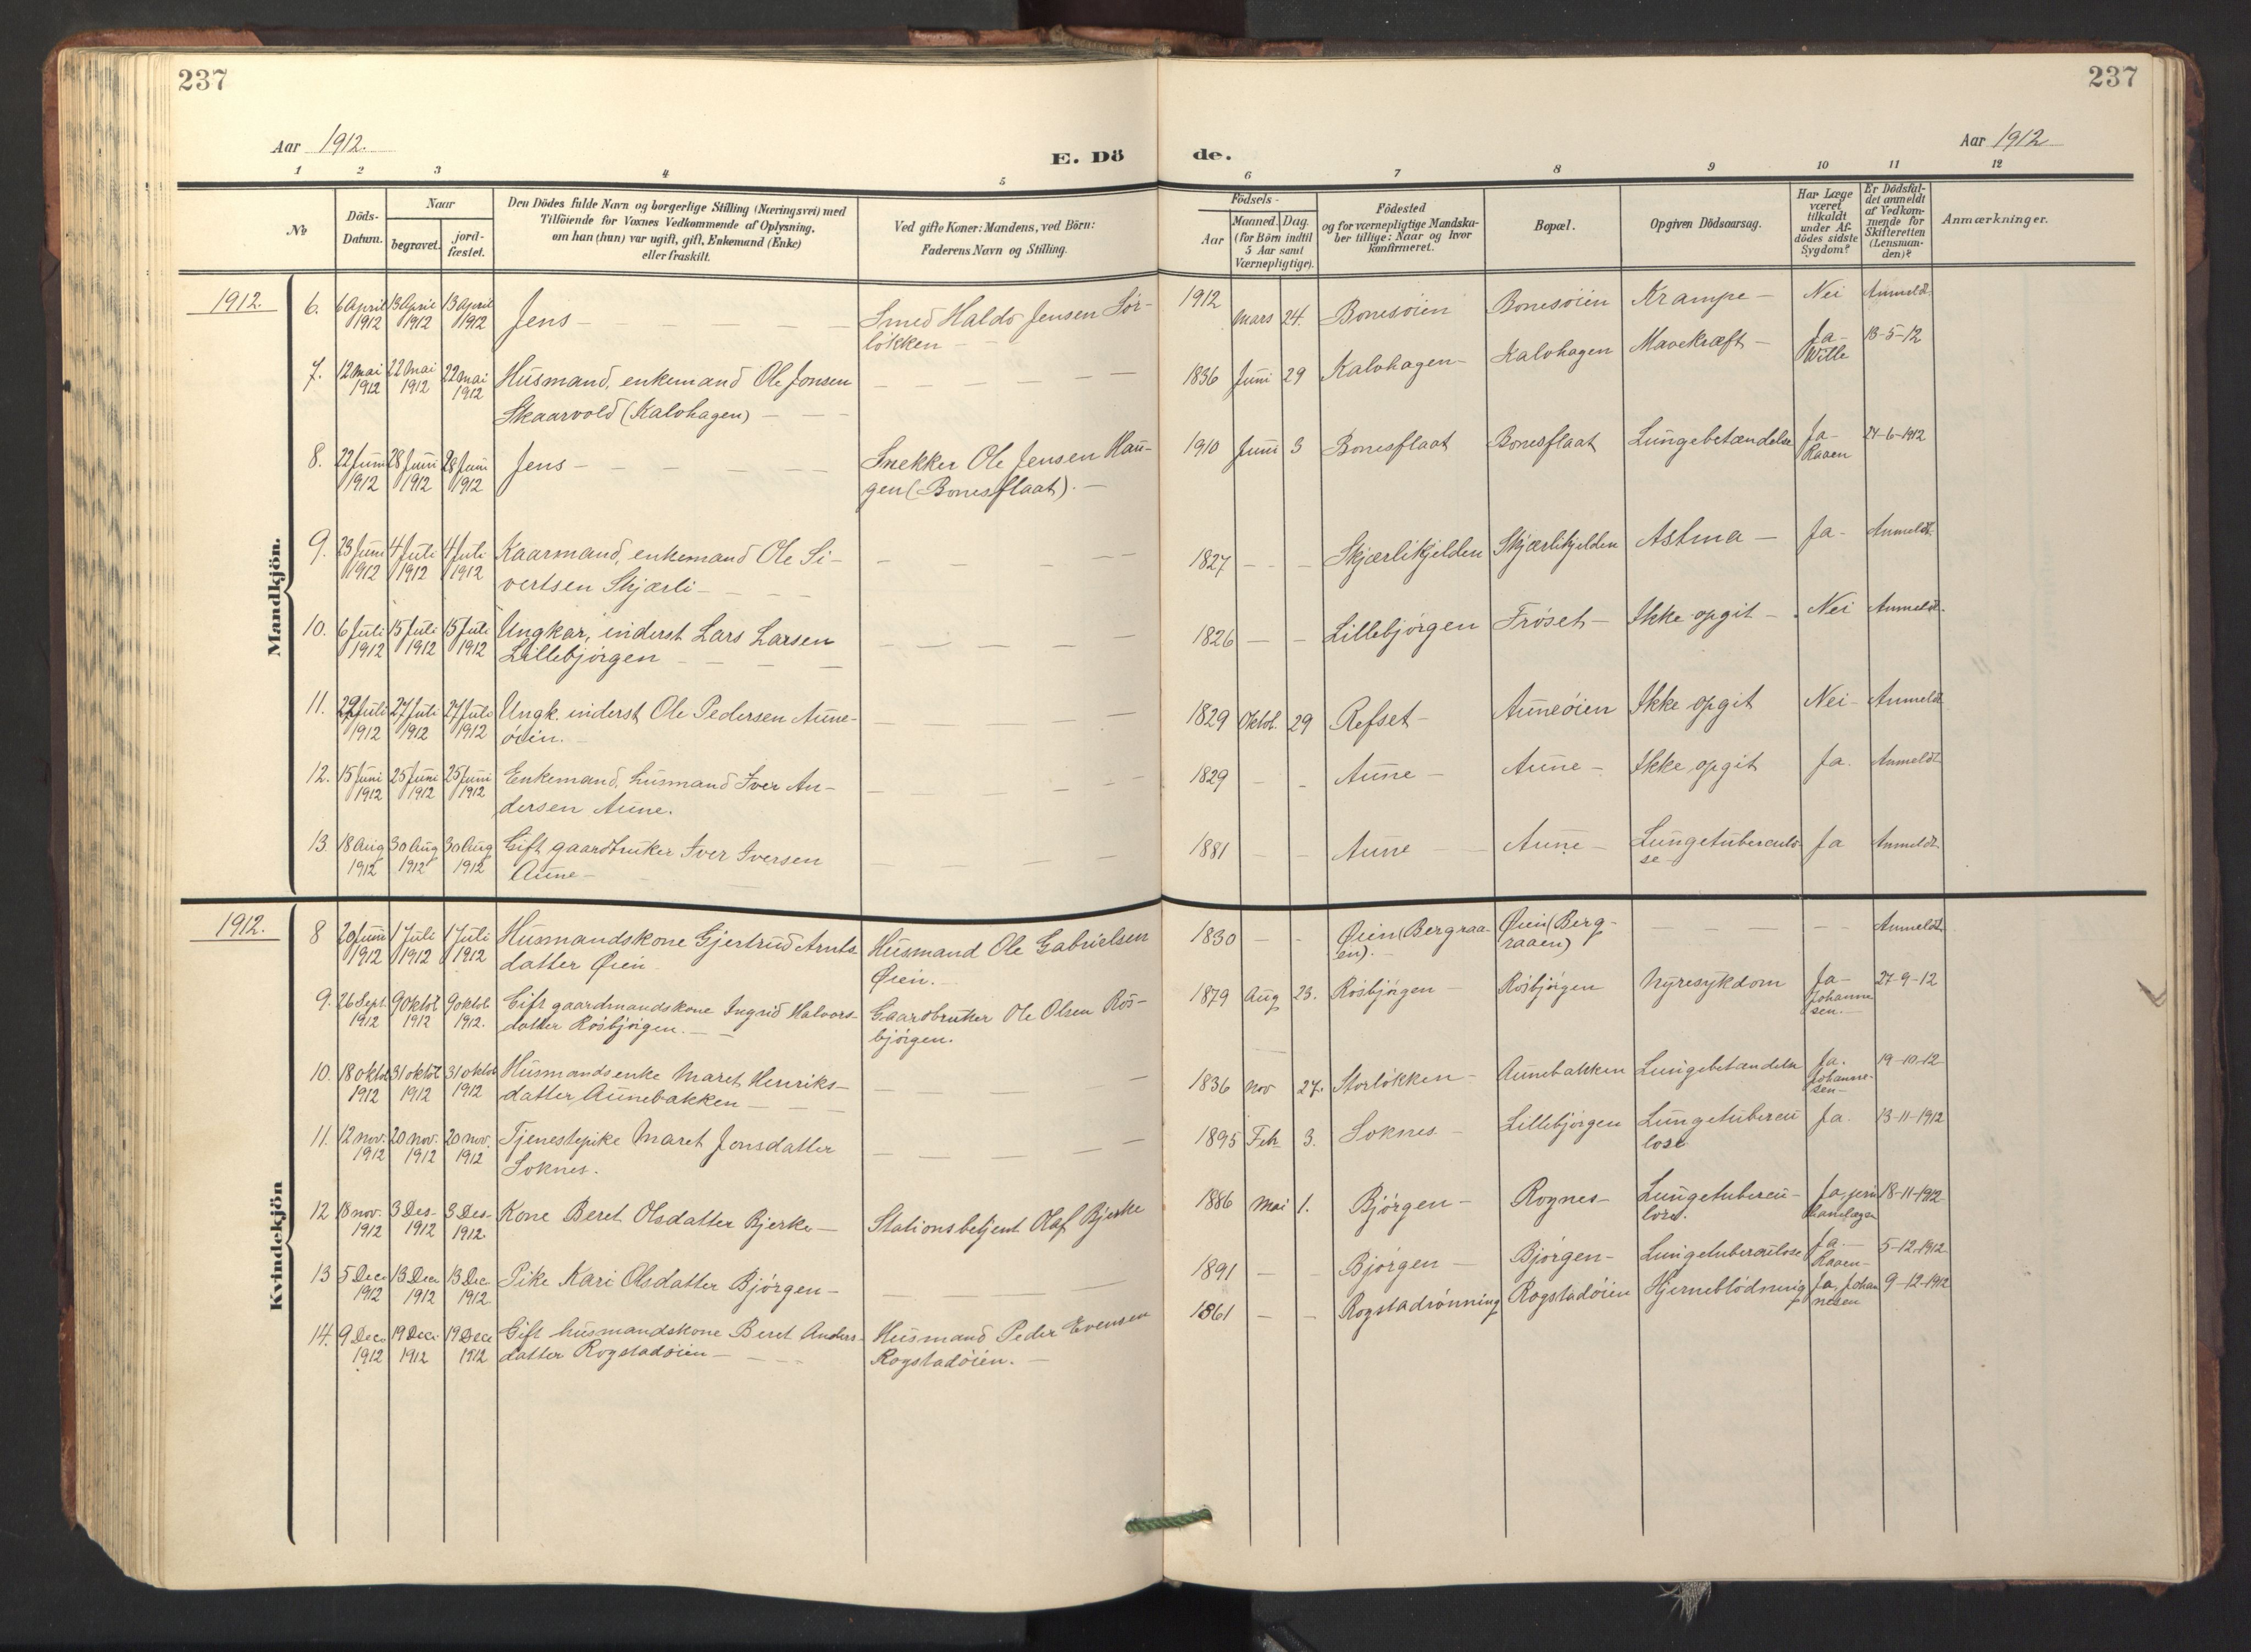 237
237
Aar 1912.
E. Dö
de.
Aar 1912
1 2 3 4 5
6 7 8 9 10 11 12
No
Döds-Datum.
Naar
begravet.
jord-fæstet.
Den Dödes fulde Navn og borgerlige Stilling (Næringsvei) med
Tilföiende for Voxnes Vedkommende af Oplysning,
om han (hun) var ugift, gift, Enkemand (Enke)
eller fraskilt.
Ved gifte Koner: Mandens, ved Börn:
Faderens Navn og Stilling.
Födsels-
Aar
Maaned. Dag.
(for Börn indtil
5 Aar samt
Værnepligtige).
Födested
og for værnepligtige Mandska-
ber tillige: Naar og hvor
konfirmeret.
Bopæl.
Opgiven Dödsaarsag.
Har Læge
været
tilkaldt
under Af-
dödes sidste
Sygdom?
Er Dödsfal-
det anmeldt
af Vedkom-
mende for
Skifteretten
(Lensman-
den)?
Anmærkninger.
Mandkjön.
1912.
6. 6 April 1912 13 April 1912 13 April 1912 Jens - Smed Haldo Jensen Sör-
lökken - 1912 Mars 24. Bonesöien Bonesöien Krampe - Nei Anmeldt.
7. 12 mai 1912 22 mai 1912 22 mai 1912 Husmand, enkemand Ole Jonsen
Skaarvold (Kalvhagen) - 1836 Juni 29 Kalvhagen - Kalvhagen Mavekræft - Ja - Wille 13-5-12
8. 22 Juni 1912 28 Juni 1912 28 Juni 1912 Jens - Snekker Ole Jensen Hau-
gen (Bonesflaat). - 1910 Juni 3 Bonesflaat Bonesflaat Lungebetændelse Ja - Raaen 24-6-1912
9. 23 Juni 1912 4 Juli 1912 4 Juli 1912 Kaarmand, enkemand Ole Si-
vertsen Skjærli - 1827 - - Skjærlikjelden Skjærlikjelden Astma - Ja - Anmeldt.
10. 6 Juli 1912 15 Juli 1912 15 Juli 1912 Ungkar, inderst Lars Larsen
Lillebjörgen - 1826 - - Lillebjörgen Fröset - Ikke opgit - Nei Anmeldt.
11. Juli 1912 27 Juli 1912 27 Juli 1912 Ungk. inderst Ole Pedersen Aune-
öien. - 1829 Oktob. 29 Refset - Auneöien Ikke opgit Nei - Anmeldt
12. 15 Juni 1912 25 Juni 1912 25 Juni 1912 Enkemand, husmand Iver An-
dersen Aune. 1829 - - Aune - Aune - Ikke opgit Ja. Anmeldt
13 18 Aug 1912 30 Aug 1912 30 Aug 1912 Gift gaardbruker Iver Iversen
Aune - 1881 - - Aune - Aune - Lungetuberculo-
se Ja Anmeldt.
Kvindekjön
1912.
8 20 Juni 1912 1 Juli 1912 1 Juli 1912 Husmandskone Gjertrud Arnts-
datter Øien Husmand Ole Gabrielsen
Øien. 1830 - - Øien (Bergraa-
en). - Øien (Berg-
raaen) - Anmeldt
9. 26 Sept. 1912 9 oktob 1912 9 oktob. 1912. Gift gaardmandskone Ingrid Halvors-
datter Rösbjörgen. - Gaardbruker Ole Olsen Rös-
björgen. 1879 Aug 23. Rösbjörgen - Rösbjörgen Nyresykdom Ja - Johanne
sen. - 27-9-12
10. 18 oktob 1912 31 oktob 1912 31 oktob 1912 Husmandsenke Maret Henriks-
datter Aunebakken - 1836 Nov 27. Storlökken - Aunebakken Lungebetændelse Ja. Johanne-
sen - 19-10-12
11. 12 nov. 1912 20 nov. 1912 20 nov. 1912 Tjenestepike Maret Jonsdatter
Soknes. 1895 Feb 3. Soknes - Lillebjörgen Lungetubercu
lose Ja. 13-11-1912
12 18 nov. 1912 3 Des- 1912 3 Des- 1912. Kone Beret Olsdatter Bjerke - Stationsbetjent Olaf Bjerke 1886 Mai 1. Björgen - Rognes - Lungetubercu-
lose. Ja, 18-11-1912
13 5 Dec. 1912 13 Dec. 1912 13 Dec 1912. Pike Kari Olsdatter Björgen - 1891 - - Björgen - Björgen - Lungetuberculose Ja - Raaen - 5-12-1912
14. 9 Dec. 1912 19 Dec. 1912 19 Dec 1912 Gift husmandskone Beret Anders-
datter Rogstadöien - Husmand Peder Evensen
Rogstadöien. - 1861 - - Rogstadrönning Rogstadöien Hjerneblödning Ja, Johan
nesen 9-12-1912